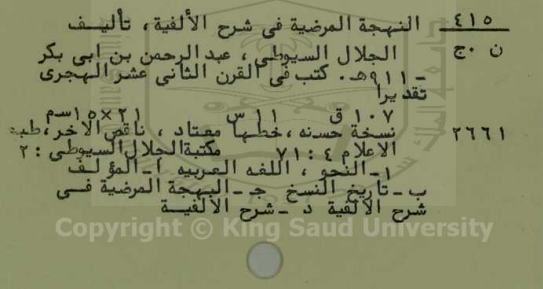 ٤١٥ النهجة المرضية فى شرح الألفية، تأليف
ن ٠ج الجلال السيوطى، عبد الرحمن بن ابى بكر
- ٩١١هـ. كتب فى القرن الثانى عشر الهجرى
تقديرا
١٠٧ ق ١١ س ٢١×١٥سم
٢٦٦١ نسخة حسنه، خطها معتاد، ناقص الآخر، طبع
الاعلام ٤ : ٧١ مكتبة الجلال السيوطى : ٢
١- النحو، اللغه العربيه أ- المؤلف
ب- تاريخ النسخ ج- البهجة المرضية فى
شرح الألفية د- شرح الألفية
Copyright © King Saud University